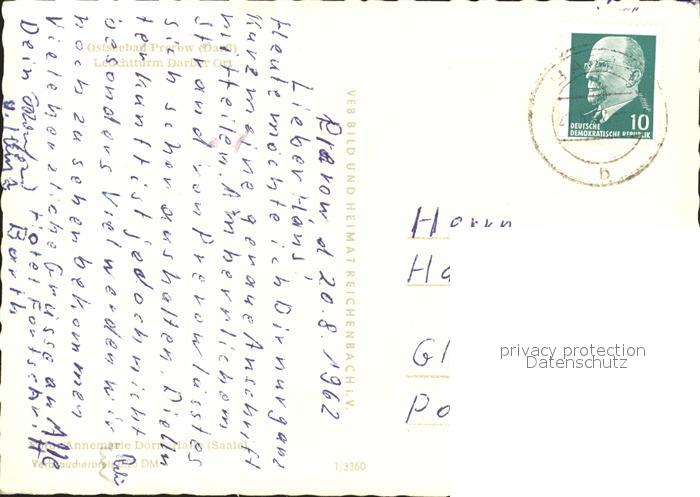 Ostseebad Prerow (Darß)
Leuchtturm Darßer Ort
Prerow d 20.8.1962
Lieber Hans!
Heute möchte ich Dir nur ganz
kurz meine genaue Anschrift
mitteilen. Am herrlichem
Strand von Prerow lässt es
sich schon aushalten. Die In
terkunft ist jedoch nicht
besonders. Viel werden wir
noch zu sehen bekommen
Viele herzliche Grüsse an Alle
Dein
Hotel Fortschritt
Barth
VEB BILD UND HEIMAT REICHENBACH i. V.
Foto: Annemarie Dorn, Halle (Saale)
Verbraucherpreis 0,25 DM
1/3360
10
DEUTSCHE
DEMOKRATISCHE REPUBLIK
b
Herrn
Ha
Gl
Po
privacy protection
Datenschutz